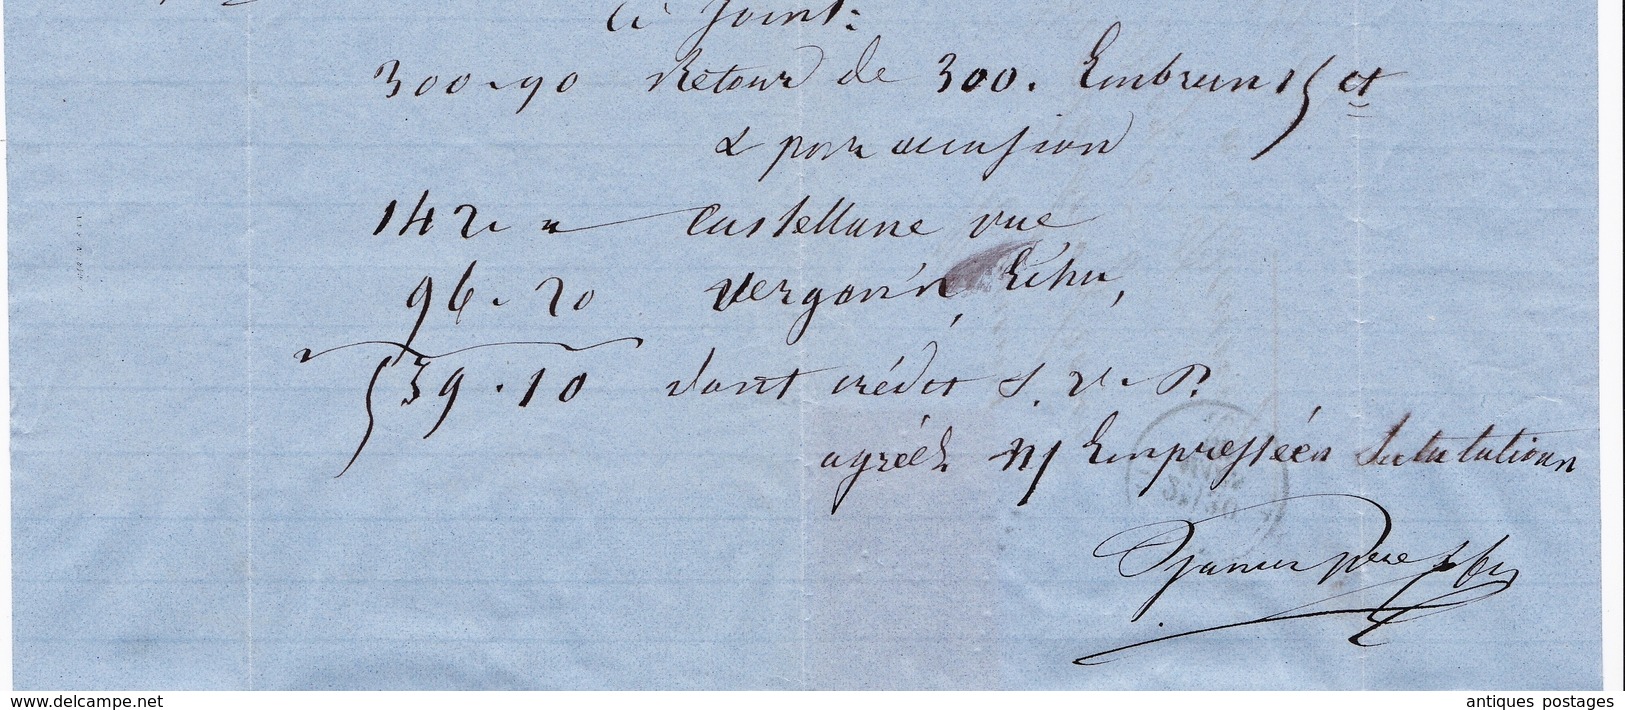 Ci Joint:
300 - 90 Retour de 300. Embrun 15 ct
& pour accusion
142 " Castellane vue
96 - 20 Vergons
539 . 10 dont crédit S. V. P.
agréez n/ Empressées Salutations
père & fils
www.delcampe.net antiques postages